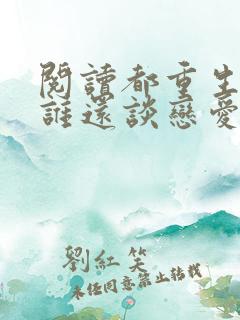 閱讀都重生
誰還談戀愛
劉紅笑
未經同意禁止轉載